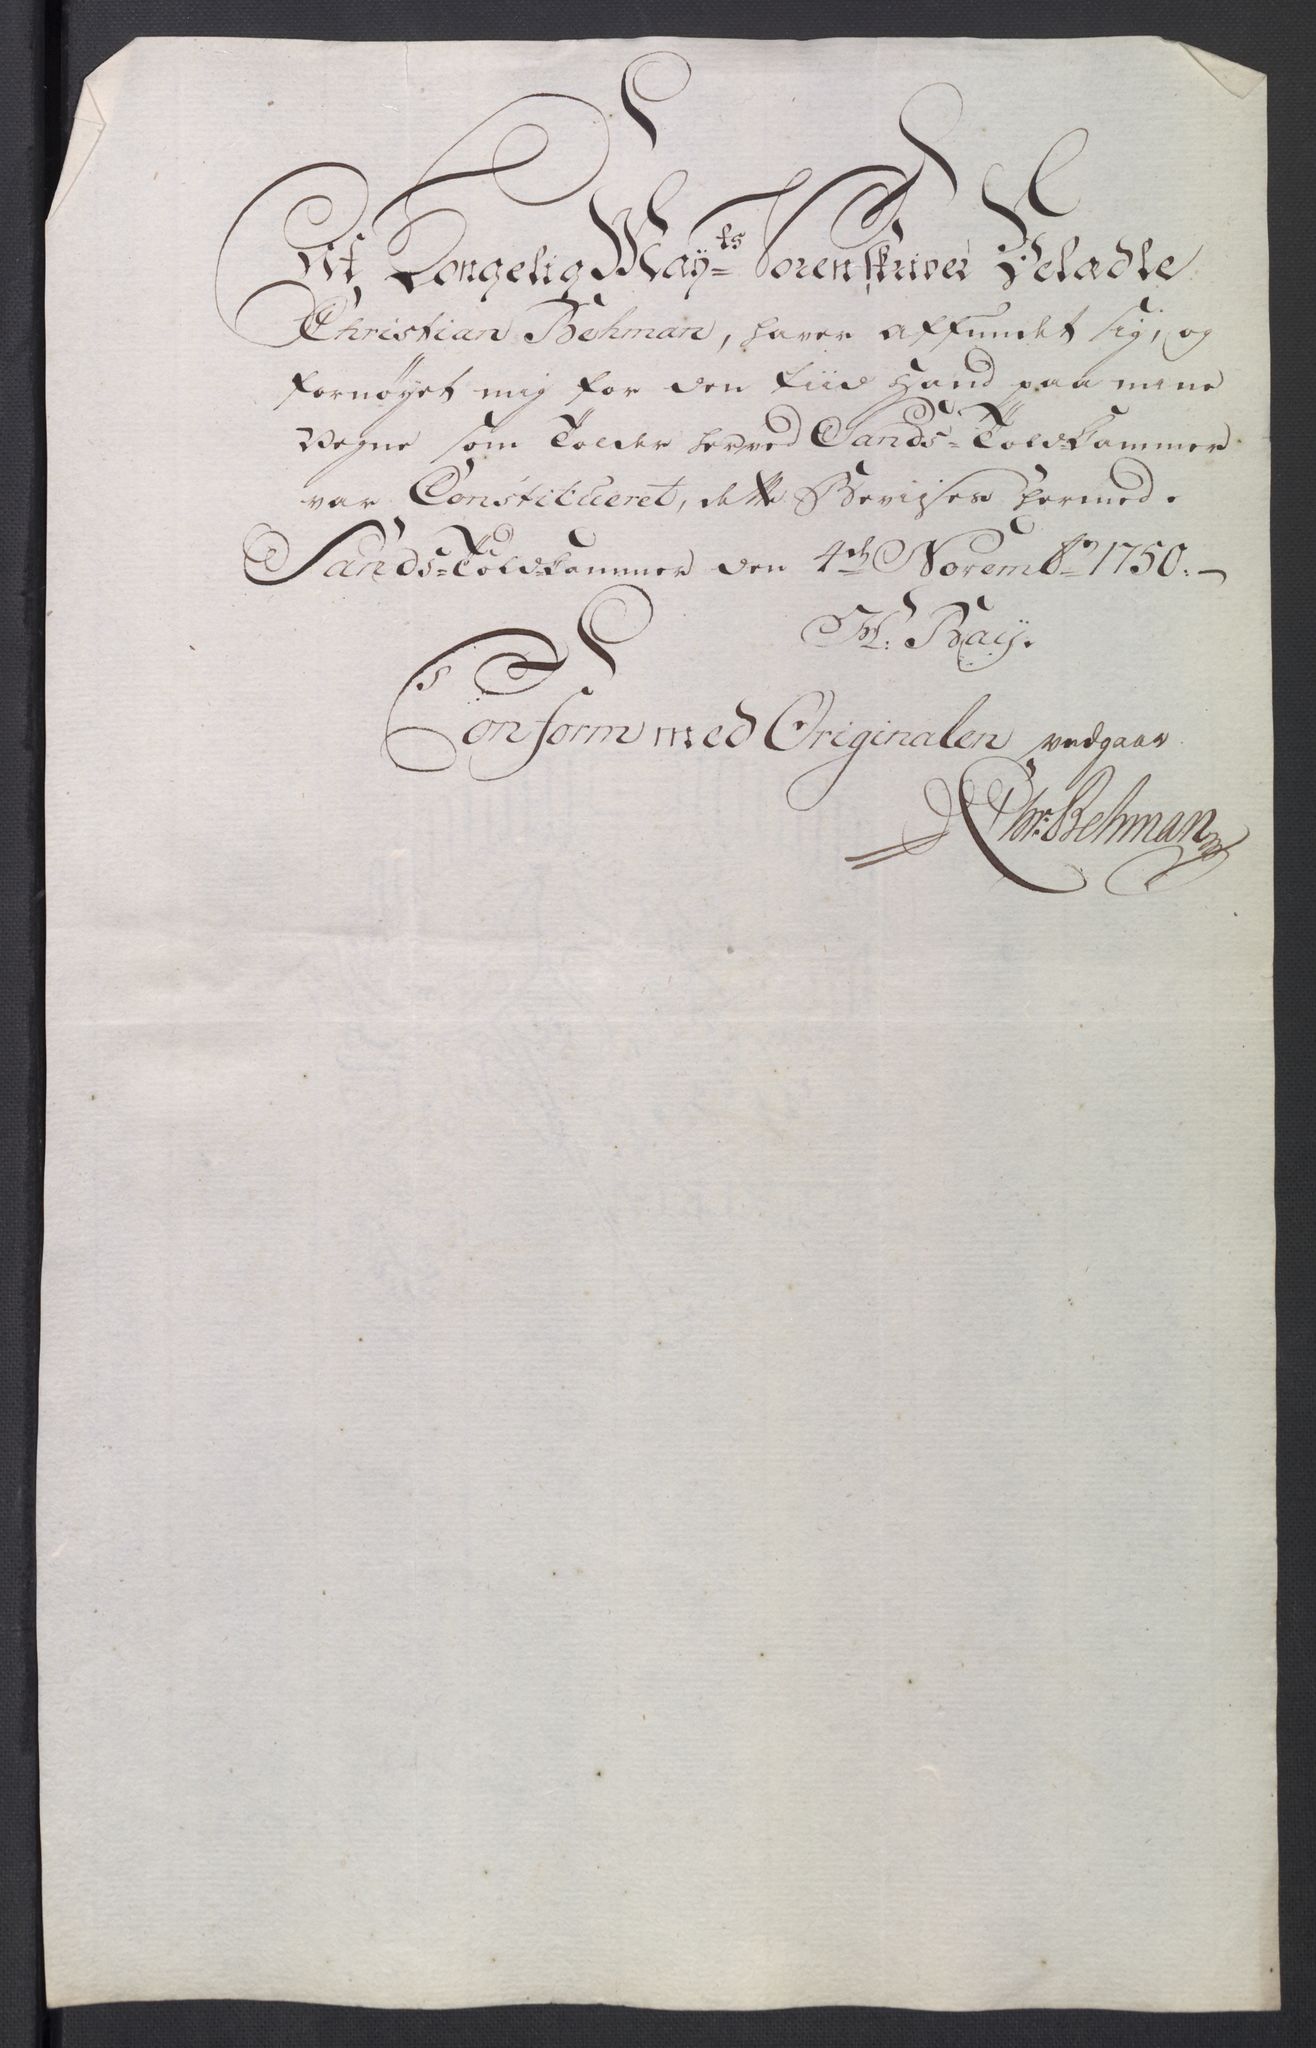 At Kongelig May=ts Sorenskriver Veladle
Christian Behman, haver affundet sig, og
fornøyet mig for den tiid Hand paa mine
Vegne som Tolder herved Sands=Toldkammer
var Constitueret, dette Bevises hermed.
Sands=Toldkammer den 4de Novembr 1750.
H. Bay.
Conform med Originalen vedgaar
Chr. Behman